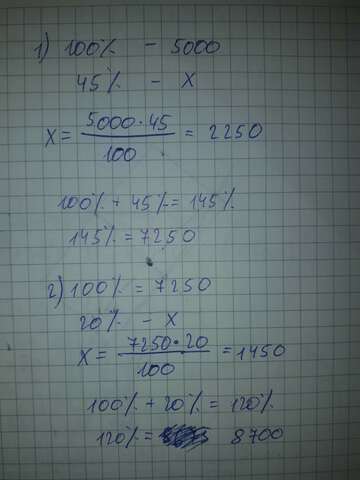 1) 100% - 5000
45% - X
X = 5000·45 / 100 = 2250
100% + 45% = 145%
145% = 7250
2) 100% = 7250
20% - X
X = 7250·20 / 100 = 1450
100% + 20% = 120%
120% = 8700